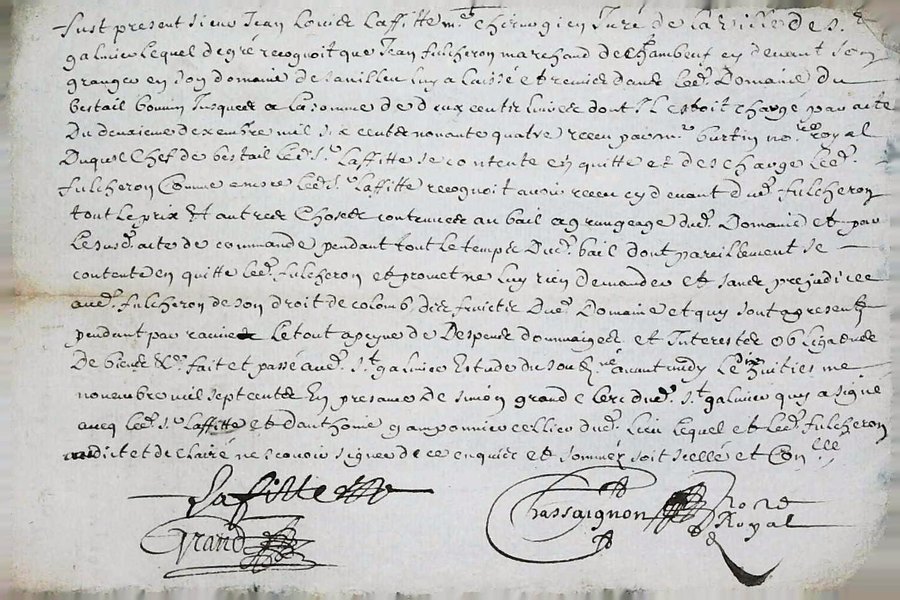 fust present sieur Jean Louise Laffitte me chirurgien Juré de la ville de St
galmier Lequel de gré recognoit que Jean fulcheron marchand de Chambeuf cy devant son
granger en son domaine de luy a laissé et remis dans Led. Domaine du
bestail bouvin Jusques a la somme de deux centz livres dont Il estoit chargé par acte
Du deuxieme dexembre mil six centz nonante quatre receu par me. burtin nore. Royal
Duquel Chef de bestail Led. Sr. Laffitte se contente en quitte et descharge Led.
fulcheron Comme encore Led. Sr. Laffitte recognoit avoir receu cy devant dud. fulcheron
tout Le prix Et autres Choses contenues au bail a grangeage dud. Domaine et par
Le susd. acte de commande pendant tout Le temps Dud. bail dont pareillement se
contente en quitte Led. fulcheron et promet ne Luy rien demander et sans prejudice
aud. fulcheron de son droit de colomb, des fruictz Dud. Domaine et quy sont a present
pendant par racines Le tout a peyne de Despens dommaiges et Interestz obligations
De biens &c. fait et passé aud. St galmier Estude du soub.né avant midy Le dix huitiesme
novembre mil sept centz En presance de simon grand clerc dud. St galmier quy a signé
avecq Led. Sr. Laffitte et d'anthoine gamponnier cellier dud. Lieu Lequel et Led. fulcheron
ont dict et declairé ne scavoir signer de ce enquis et sommés soit scellé et Conllé
Laffitte
Grand
Chassaignon
nore
Royal